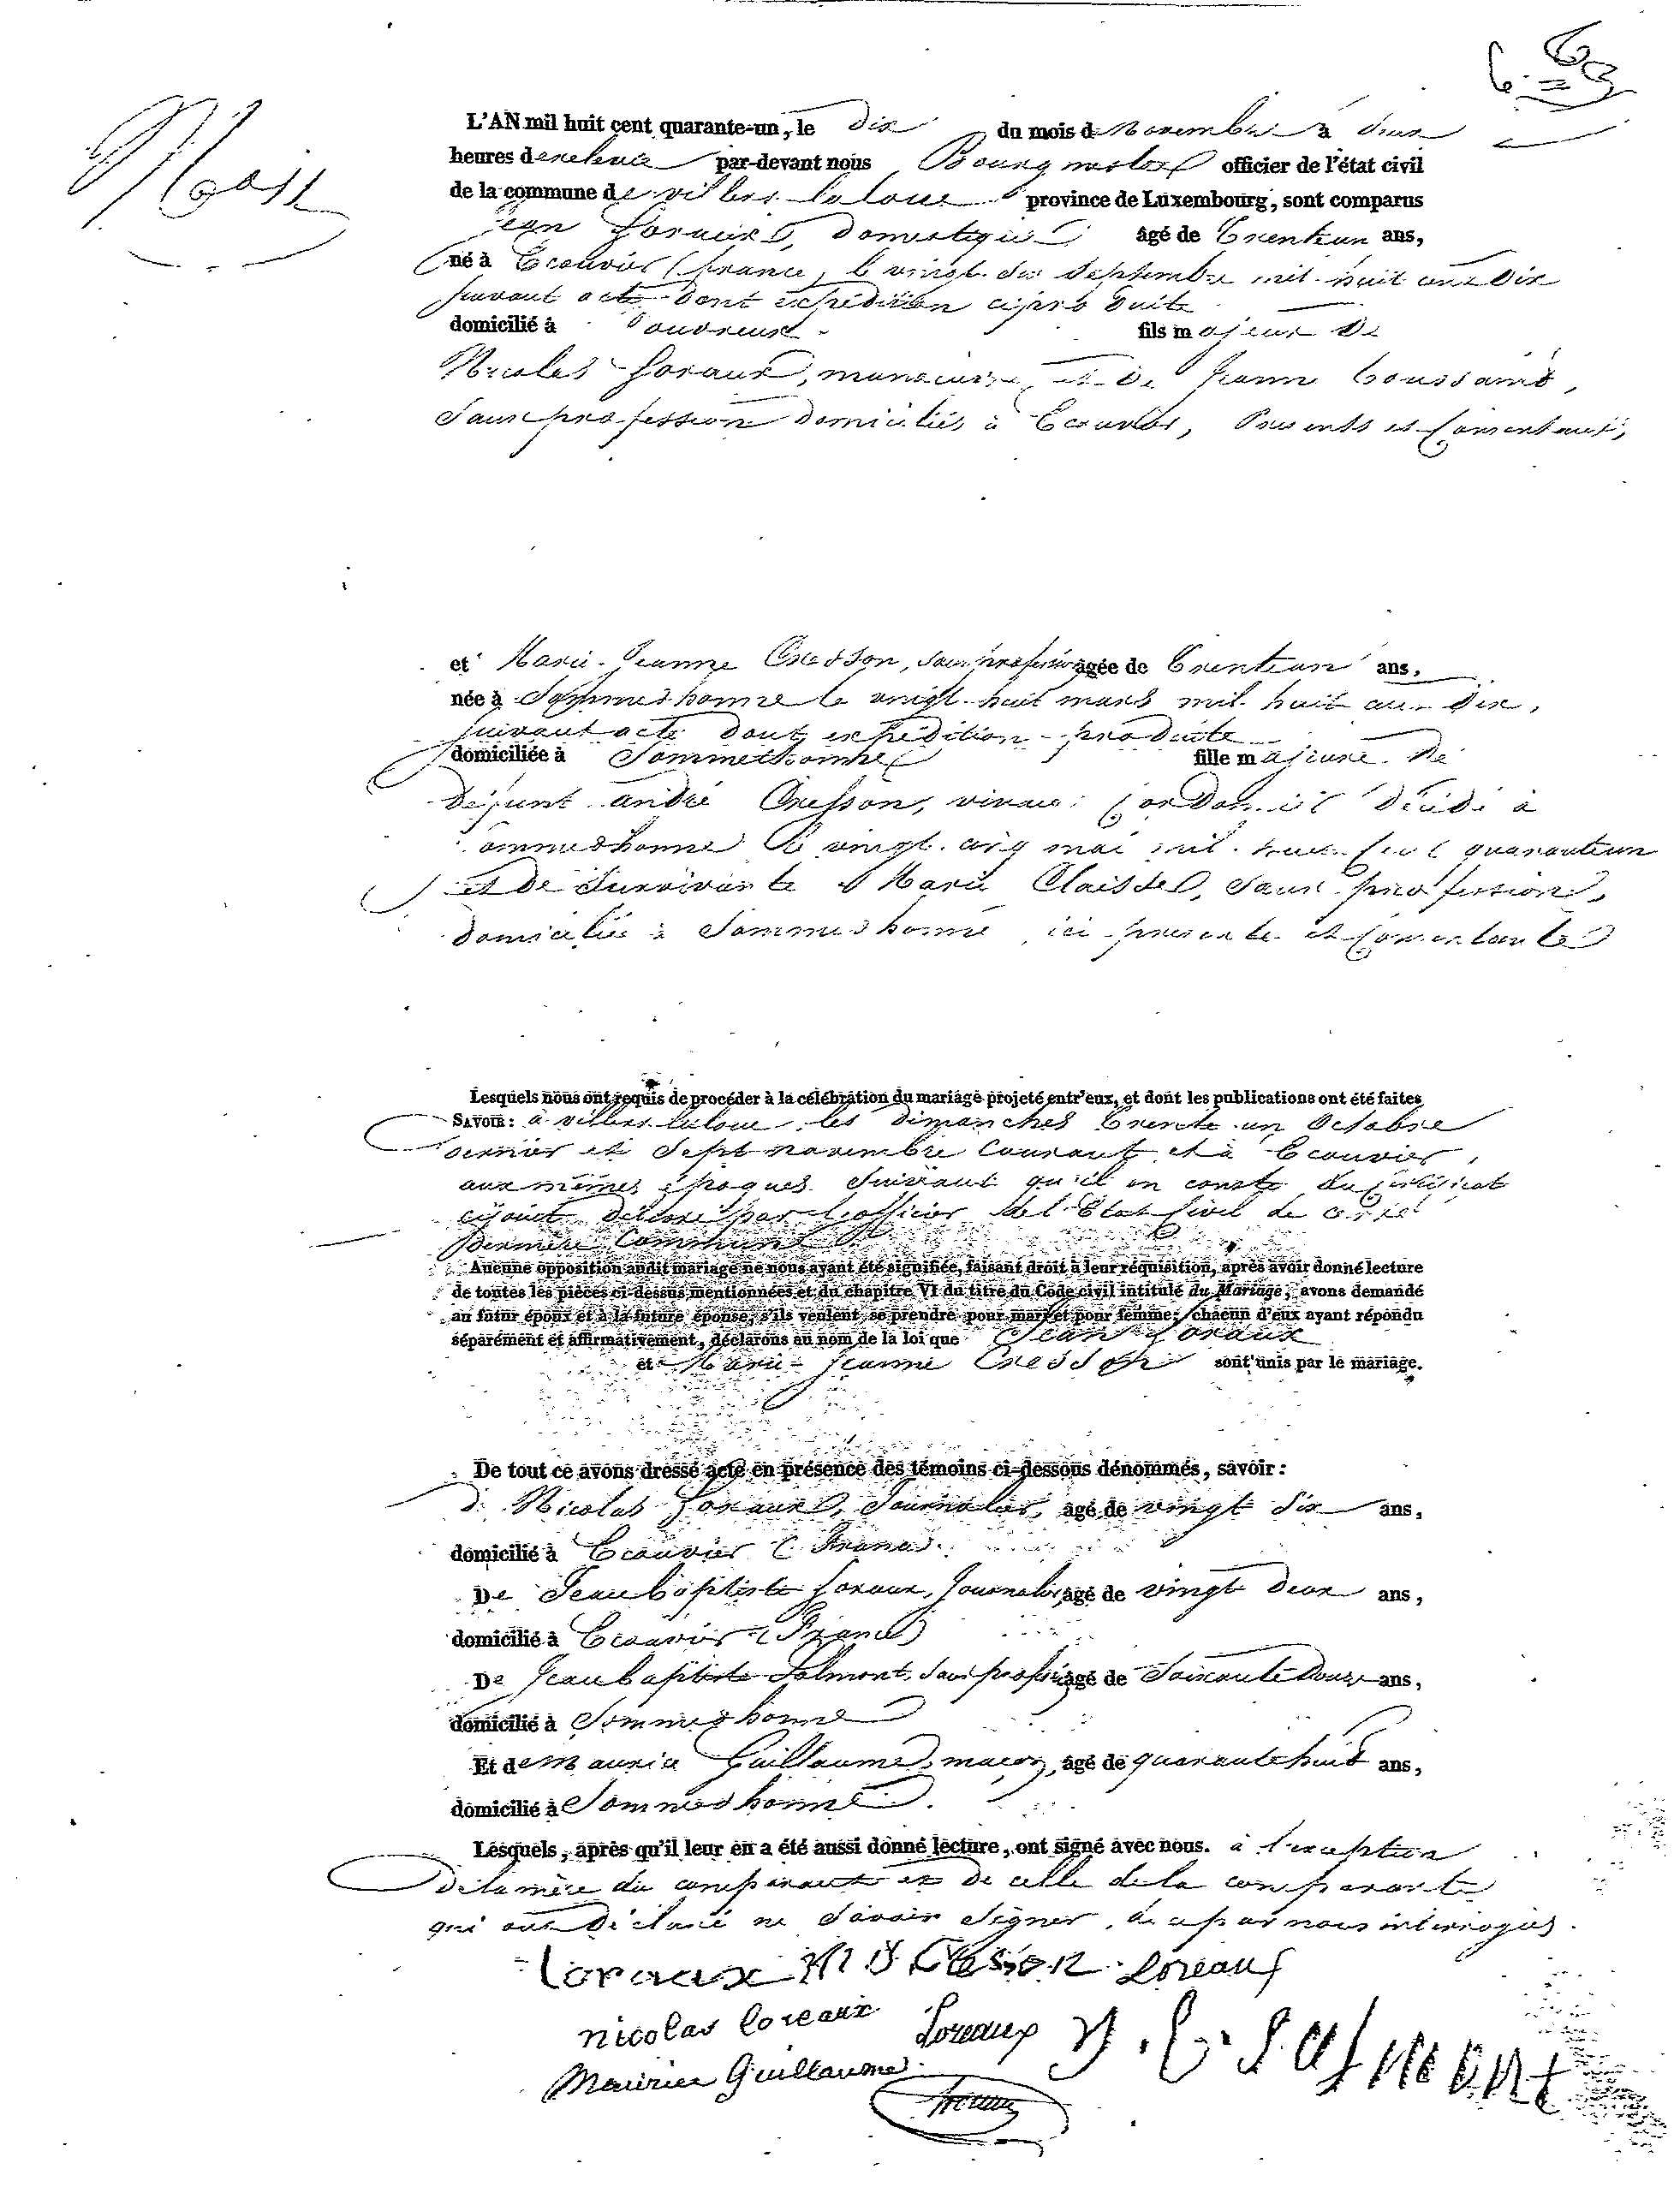 L'AN mil huit cent quarante-un, le dix du mois de Novembre à deux
heures de relevée par-devant nous Bourgmestre officier de l'état civil
de la commune de villers la loue province de Luxembourg, sont comparus
Jean Loraux, domestique âgé de Trente un ans,
né à Ecouvier (france) le vingt six Septembre mil huit cent Dix
suivant acte dont expédition ci produite
domicilié à Couvreux fils majeur de
Nicolas Loraux, manœuvre et de Jeanne Toussaint,
sans profession domiciliés à Ecouvier, Présents et Consentants,
et Marie Jeanne Cresson, sans profession agée de Trente un ans,
née à Sommethonne le vingt huit mars mil huit cent dix,
suivant acte dont expédition produite
domiciliée à Sommethonne fille majeure de
défunt andré Cresson, vivant Cordonnier décédé à
Sommethonne le vingt cinq mai mil huit cent quarante un
et de Survivante Marie Claisse, sans profession,
domiciliée à Sommethonne ici présente et Consentante
Lesquels nous ont requis de procéder à la célébration du mariage projeté entr'eux, et dont les publications ont été faites
SAVOIR: à villers la loue les dimanches Trente un Octobre
dernier et Sept novembre Courant et à Ecouvier,
aux mêmes époques suivant qu'il en conste du certificat
cijoint délivré par l'officier de l'Etat Civil de cette
dernière Commune
Aucune opposition audit mariage ne nous ayant été signifiée, faisant droit à leur réquisition, après avoir donné lecture
de toutes les pièces ci-dessus mentionnées et du chapitre VI du titre du Code civil intitulé du Mariage, avons demandé
au futur époux et à la future épouse, s'ils veulent se prendre pour mari et pour femme; chacun d'eux ayant répondu
séparément et affirmativement, déclarons au nom de la loi que Jean Loraux
et Marie Jeanne Cresson sont unis par le mariage.
De tout ce avons dressé acte en présence des témoins ci-dessous dénommés, savoir:
de Nicolas Loraux, Journalier, âgé de vingt six ans,
domicilié à Ecouvier (France)
De Jean Baptiste Loraux, Journalier, âgé de vingt deux ans,
domicilié à Ecouvier (France)
De Jean Baptiste Salmont, sans profession âgé de Soixante Douze ans,
domicilié à Sommethonne
Et de Maurice Guillaume, maçon, âgé de quarante huit ans,
domicilié à Sommethonne.
Lesquels, après qu'il leur en a été aussi donné lecture, ont signé avec nous. à l'exception
de la mère du comparant et de celle de la comparante
qui ont Déclaré ne Savoir Signer, de ce par nous interrogés.
loraux M J Cresson Loreaux
nicolas loreaux Loreaux J. B. Salmont
Maurice Guillaume